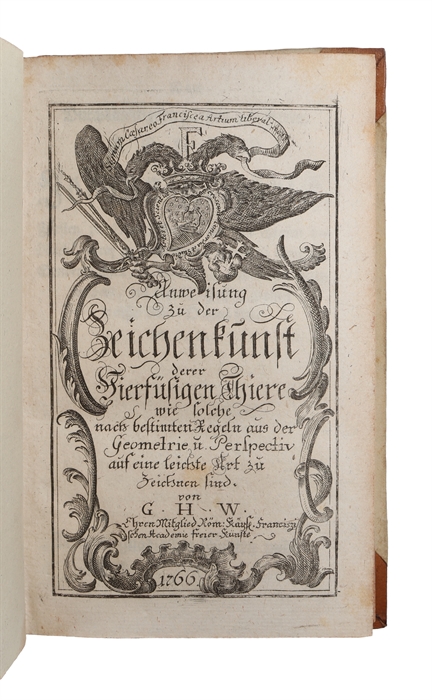 Caesareo Franciscea Artium liberal.
F
Anweisung
zu der
Zeichenkunst
derer
Vierfüsigen Thiere
wie solche
nach bestim̅ten Regeln aus der
Geometrie u. Perspectiv
auf eine leichte Art zu
Zeichnen sind.
von
G. H. W.
Ehren Mitglied Röm: Kayss. Francisci
schen Academie freier Künste
1766.